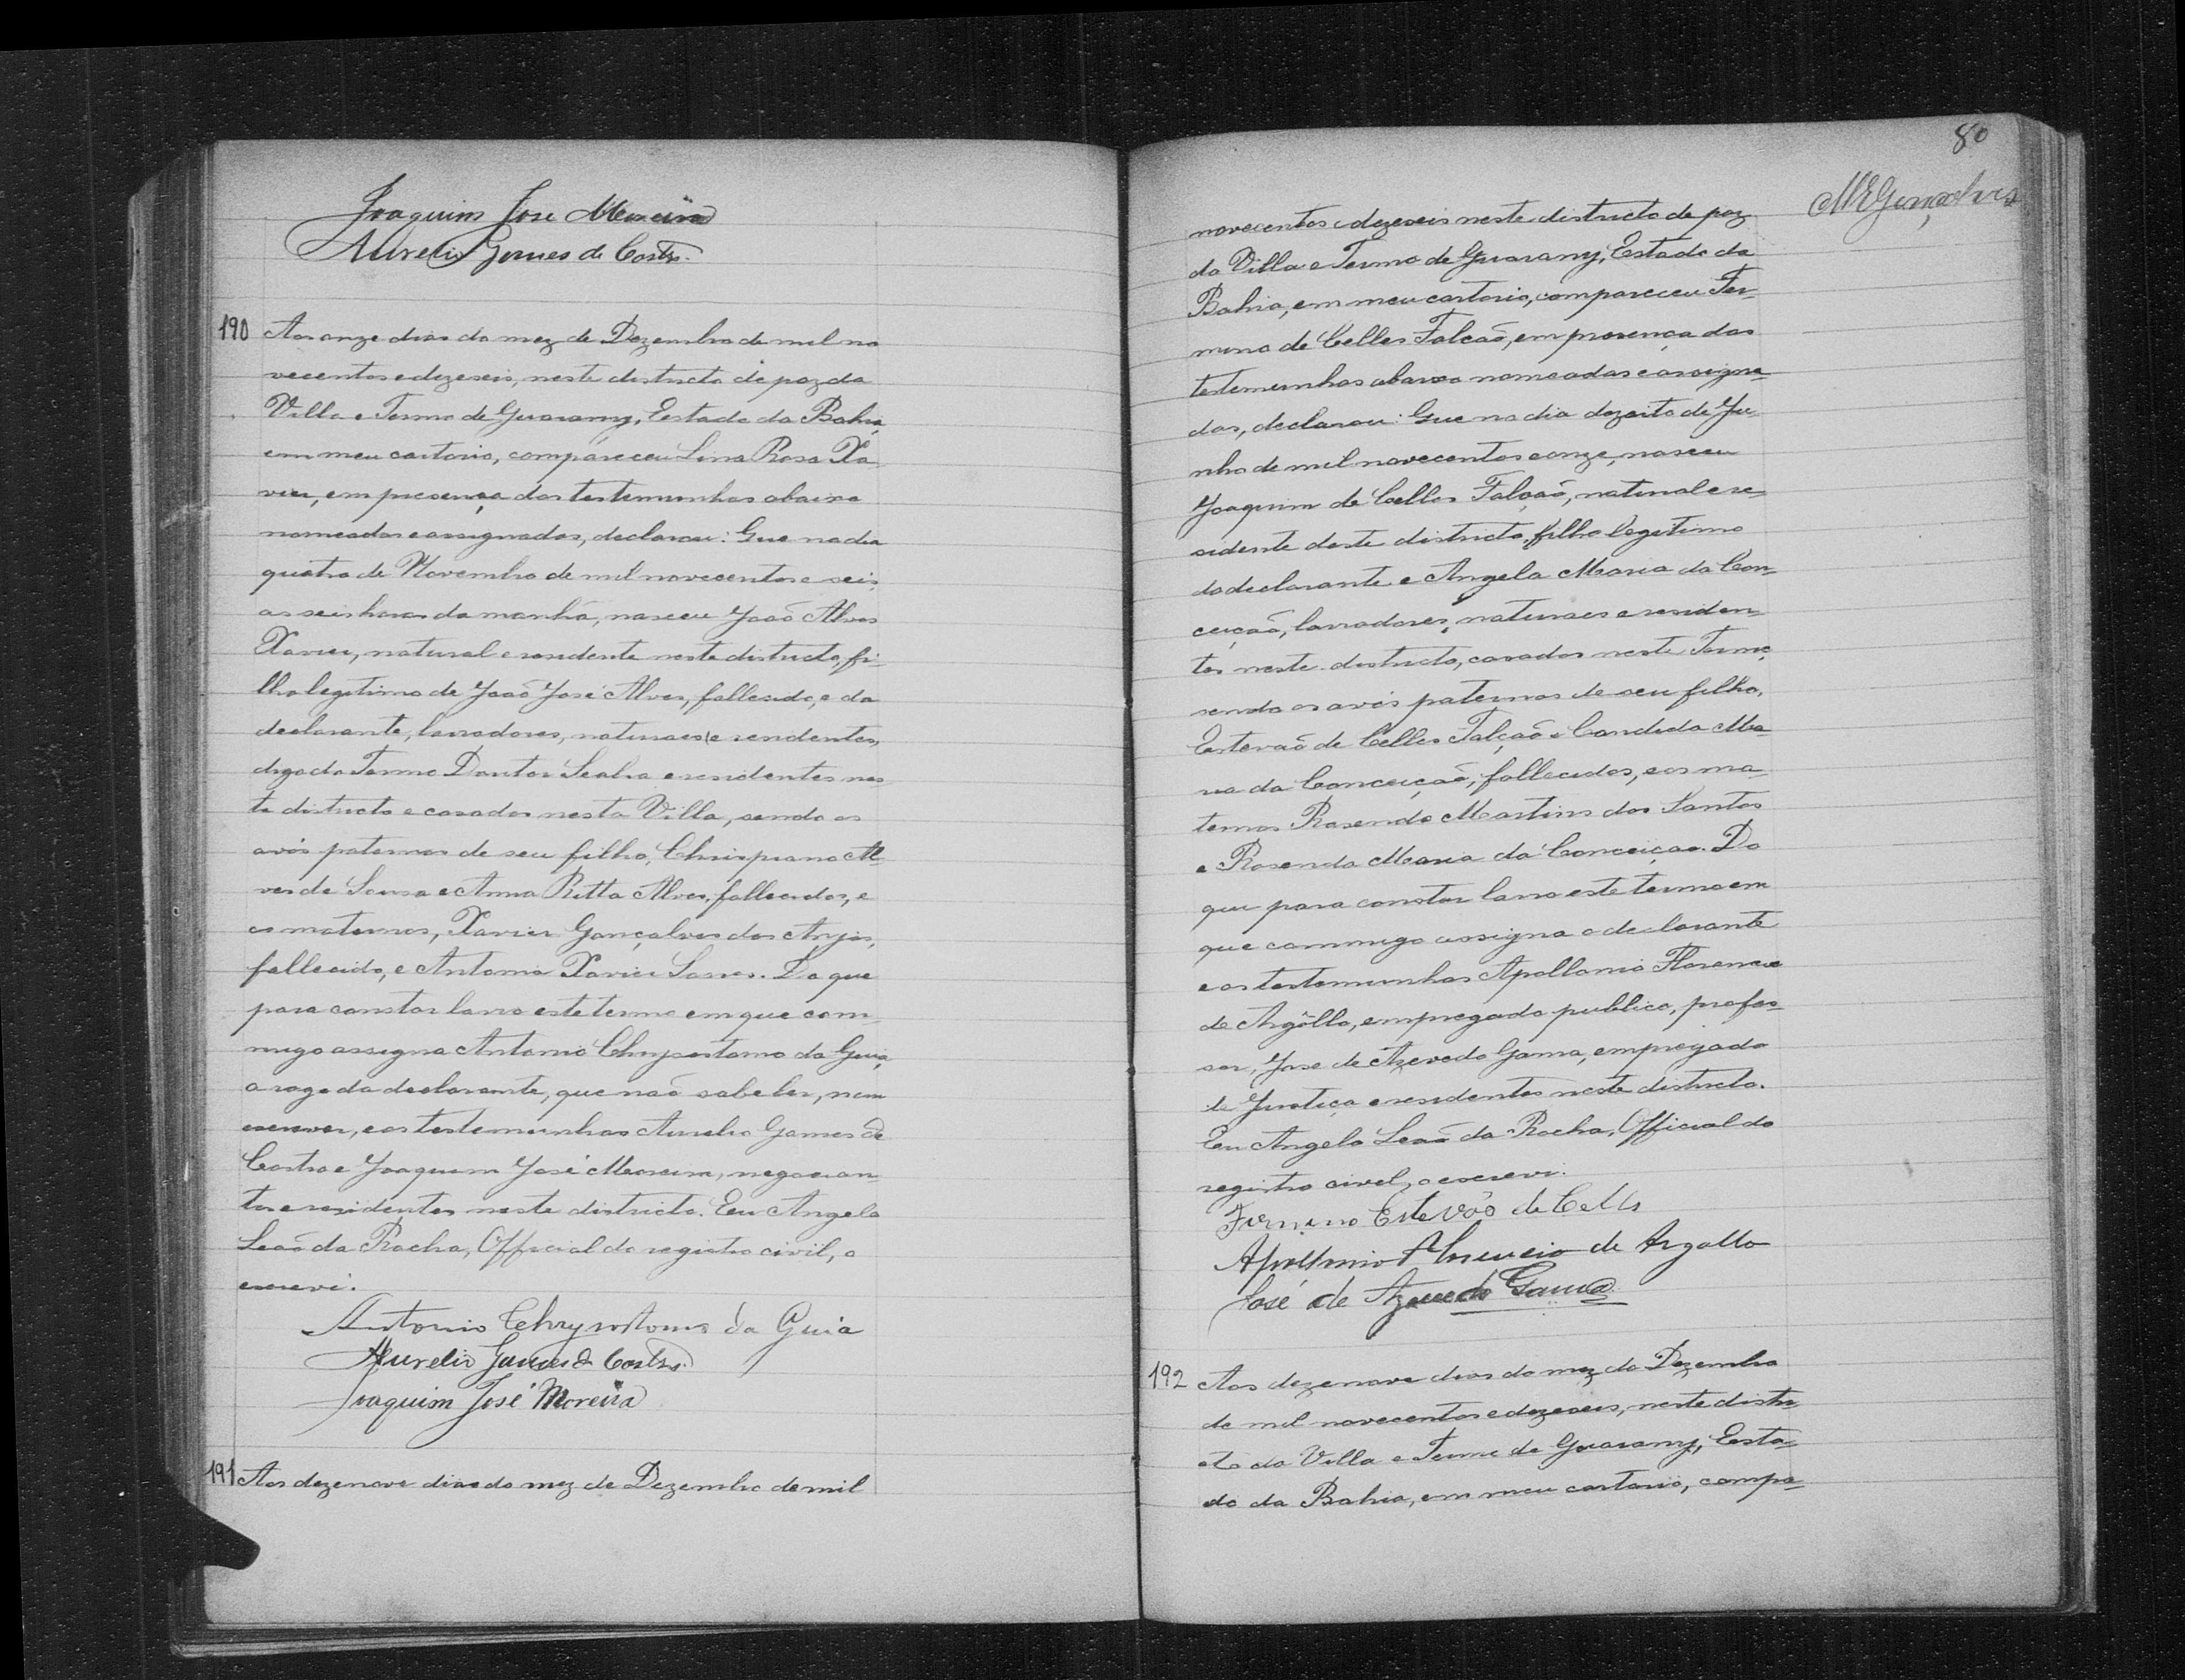 Joaquim José Moreira
Aurelio Gomes de Castro.
190 Aos onze dias do mez de Dezembro de mil no
vecentos e dezeseis, neste districto de paz da
Villa e Termo de Guarany, Estado da Bahia,
em meu cartorio, compareceu Lina Rosa Xa
vier, em presença das testemunhas abaixo
nomeadas e assignadas, declarou: Que no dia
quatro de Novembro de mil novecentos e seis,
as seis horas da manhã, nasceu João Alves
Xavier, natural e residente neste districto, fi-
lho legitimo de João José Alves, fallecido, e da
declarante, lavradores, naturaes e residentes,
digo do Termo Doutor Seabra e residentes nes
te districto e casados nesta Villa, sendo os
avós paternos de seu filho, Chrispiano Al-
ves de Sousa e Anna Ritta Alves, fallecidos, e
os maternos, Xavier Gonçalves dos Anjos,
fallecido, e Antonia Xavier. Do que
para constar lavro este termo em que com-
migo assigna Antonio Chrysostomo da Guia,
a rogo da declarante, que não sabe ler, nem
escrever, e as testemunhas Aurelio Gomes de
Castro e Joaquim José Moreira, negocian
tes e residentes neste districto. Eu Angelo
Leão da Rocha, Official do registro civil, o
escrevi.
Antonio Chrysostomo da Guia
Aurelio Gomes de Castro.
Joaquim José Moreira
191 Aos dezenove dias do mez de Dezembro de mil
80
MEGonçalves
novecentos e dezeseis neste districto de paz
da Villa e Termo de Guarany, Estado da
Bahia, em meu cartorio, compareceu Fir-
mino de Celles Falcão, em presença das
testemunhas abaixo nomeadas e assigna-
das, declarou: Que no dia dezoito de Ju-
nho de mil novecentos e onze, nasceu
Joaquim de Celles Falcão, natural e re-
sidente deste districto, filho legitimo
do declarante e Angela Maria da Con-
ceição, lavradores, naturaes e residen-
tes neste districto, casados neste Termo,
sendo os avós paternos de seu filho,
Estevão de Celles Falcão e Candida Ma-
ria da Conceição, fallecidos, e os ma-
ternos Rosendo Martins dos Santos
e Rosenda Maria da Conceição. Do
que para constar lavro este termo em
que commigo assigna o declarante
e as testemunhas Apollonio Florencio
de Argôllo, empregado publico, profes-
sor, José de Azevedo Gama, empregado
de Justiça e residentes neste districto.
Eu Angelo Leão da Rocha, Official do
registro civel, o escrevi.
Firmino Estevão de Cells
Apollonio Florencio de Argollo
José de Azevedo Gama
192 Aos dezenove dias do mez de Dezembro
de mil novecentos e dezeseis, neste distri-
cto da Villa e Termo de Guarany, Esta-
do da Bahia, em meu cartorio, compa-